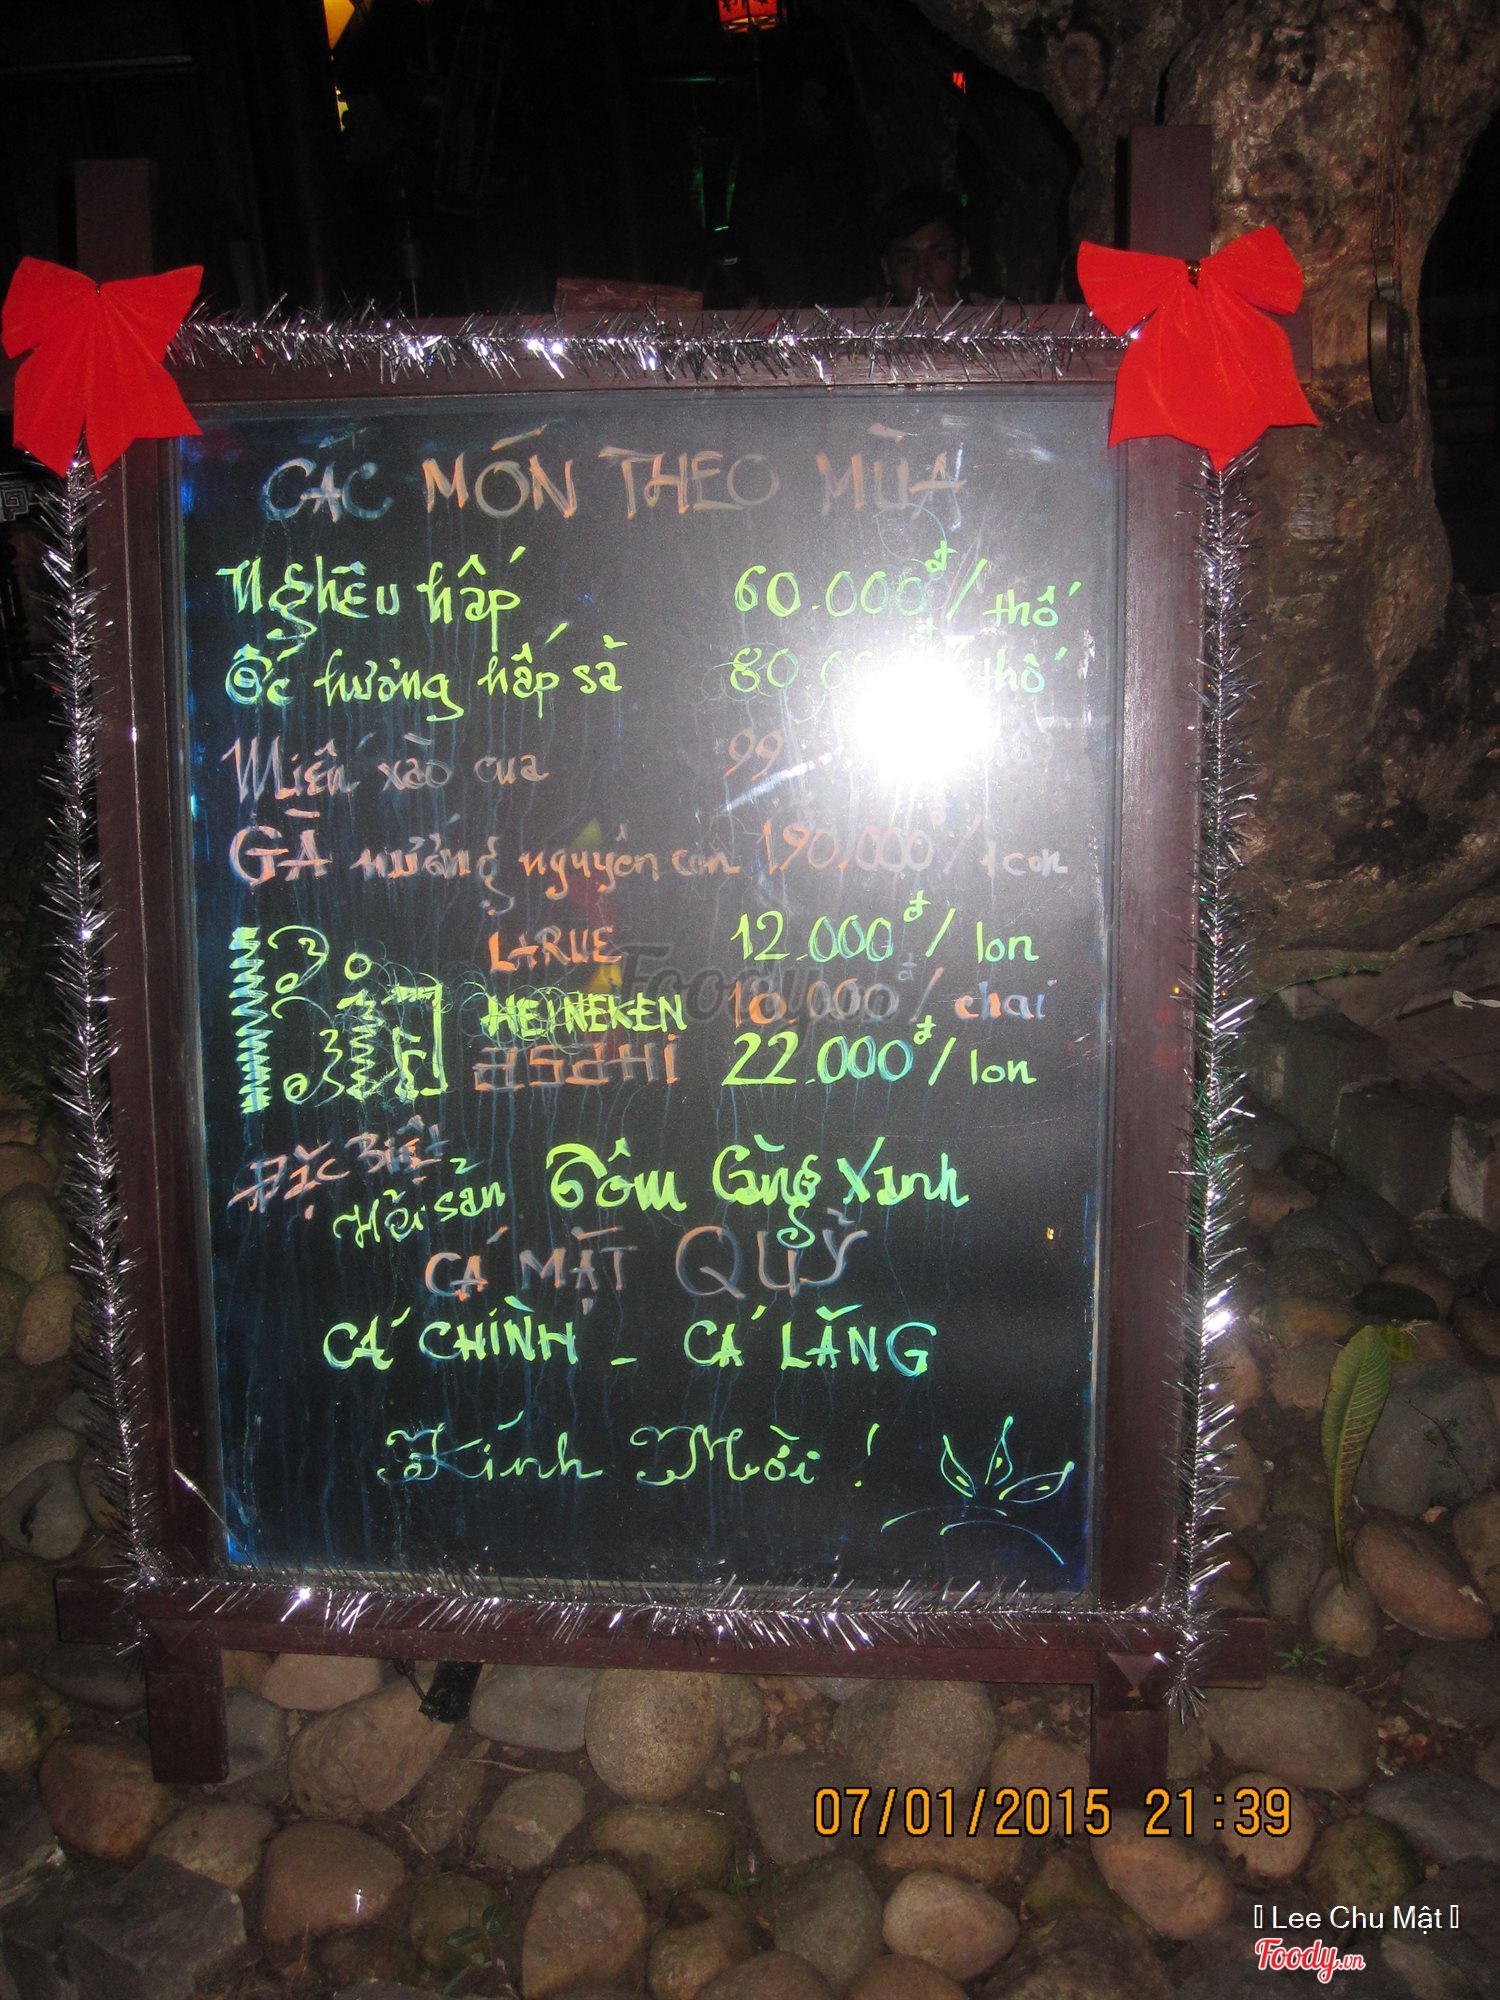 CÁC MÓN THEO MÙA
Nghêu hấp 60.000đ/thố
Ốc hương hấp sả 80.000đ/thố
Miến xào cua 99
GÀ nướng nguyên con 190.000đ/1con
LARUE 12.000đ/lon
HEINEKEN 18.000đ/chai
ASAHI 22.000đ/lon
Đặc Biệt
Hải sản Tôm Càng Xanh
CÁ MẶT QUỶ
CÁ CHÌNH - CÁ LĂNG
Kính Mời!
Foody.vn
07/01/2015 21:39
Lee Chu Mật
Foody.vn